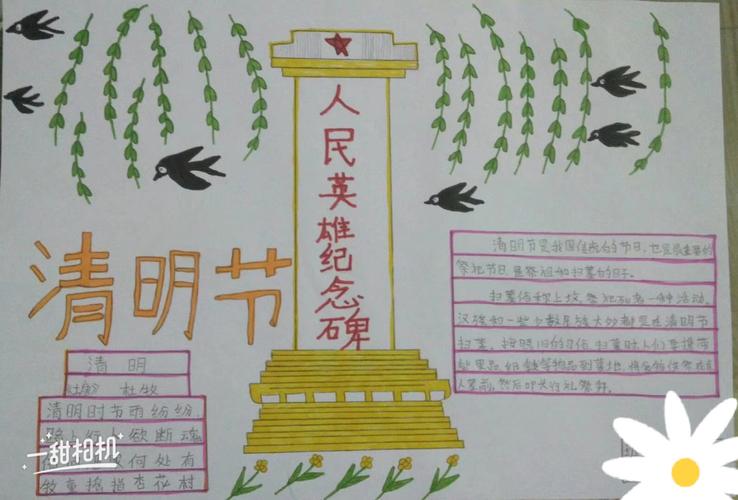 人民英雄纪念碑
清明节
清明
杜牧
清明时节雨纷纷,
路上行人欲断魂
何处有
牧童摇指杏花村
一甜相机
清明节是我国传统的节日,也是最重要的
祭祀节日是祭祖和扫墓的日子。
扫墓俗称上坟,祭祀死者一种活动。
汉族和一些少数民族大多都是在清明节
扫墓。按照旧的习俗扫墓时人们要携带
纸钱等物品到墓地,将食物供祭在亲
人墓前,然后叩头行礼祭拜